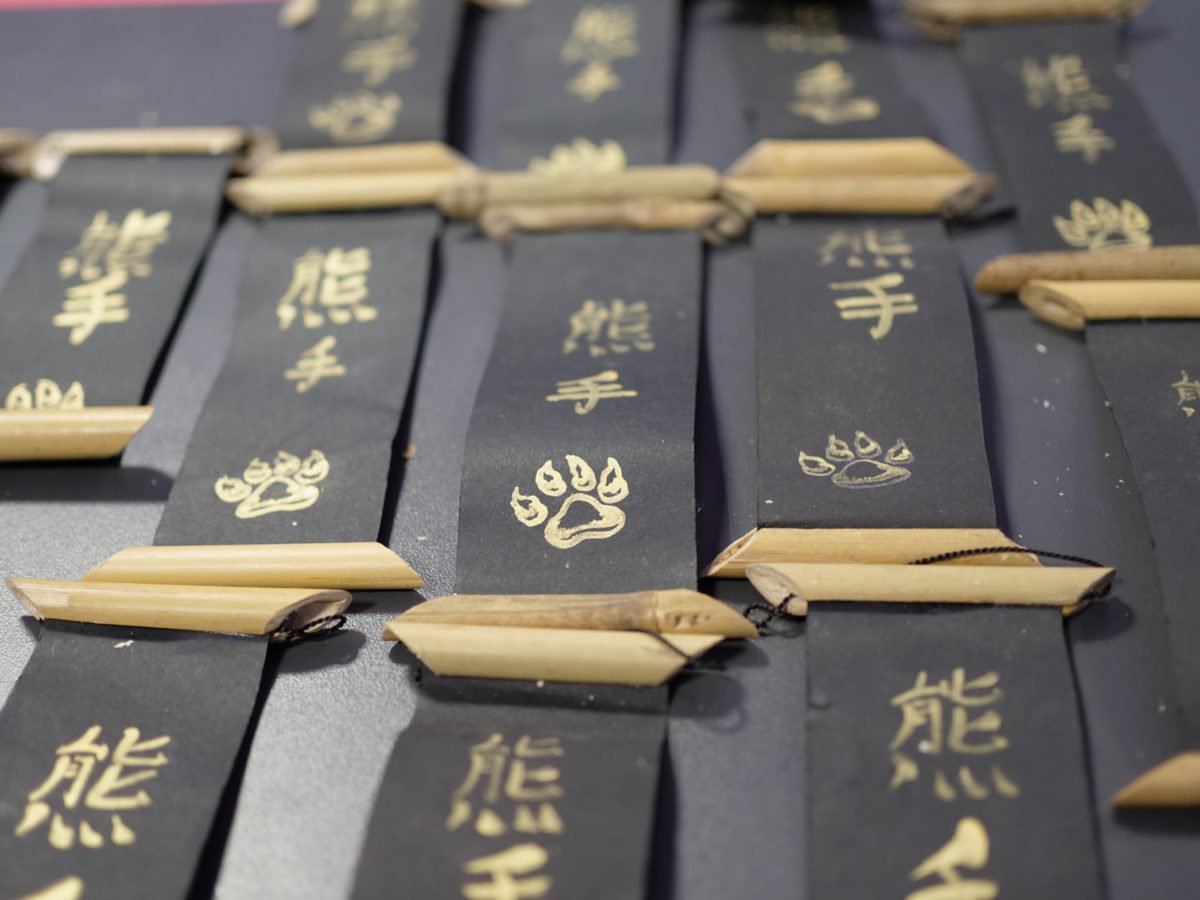 熊手
熊手
熊手
熊手
熊手
熊手
熊手
熊
熊手
熊手